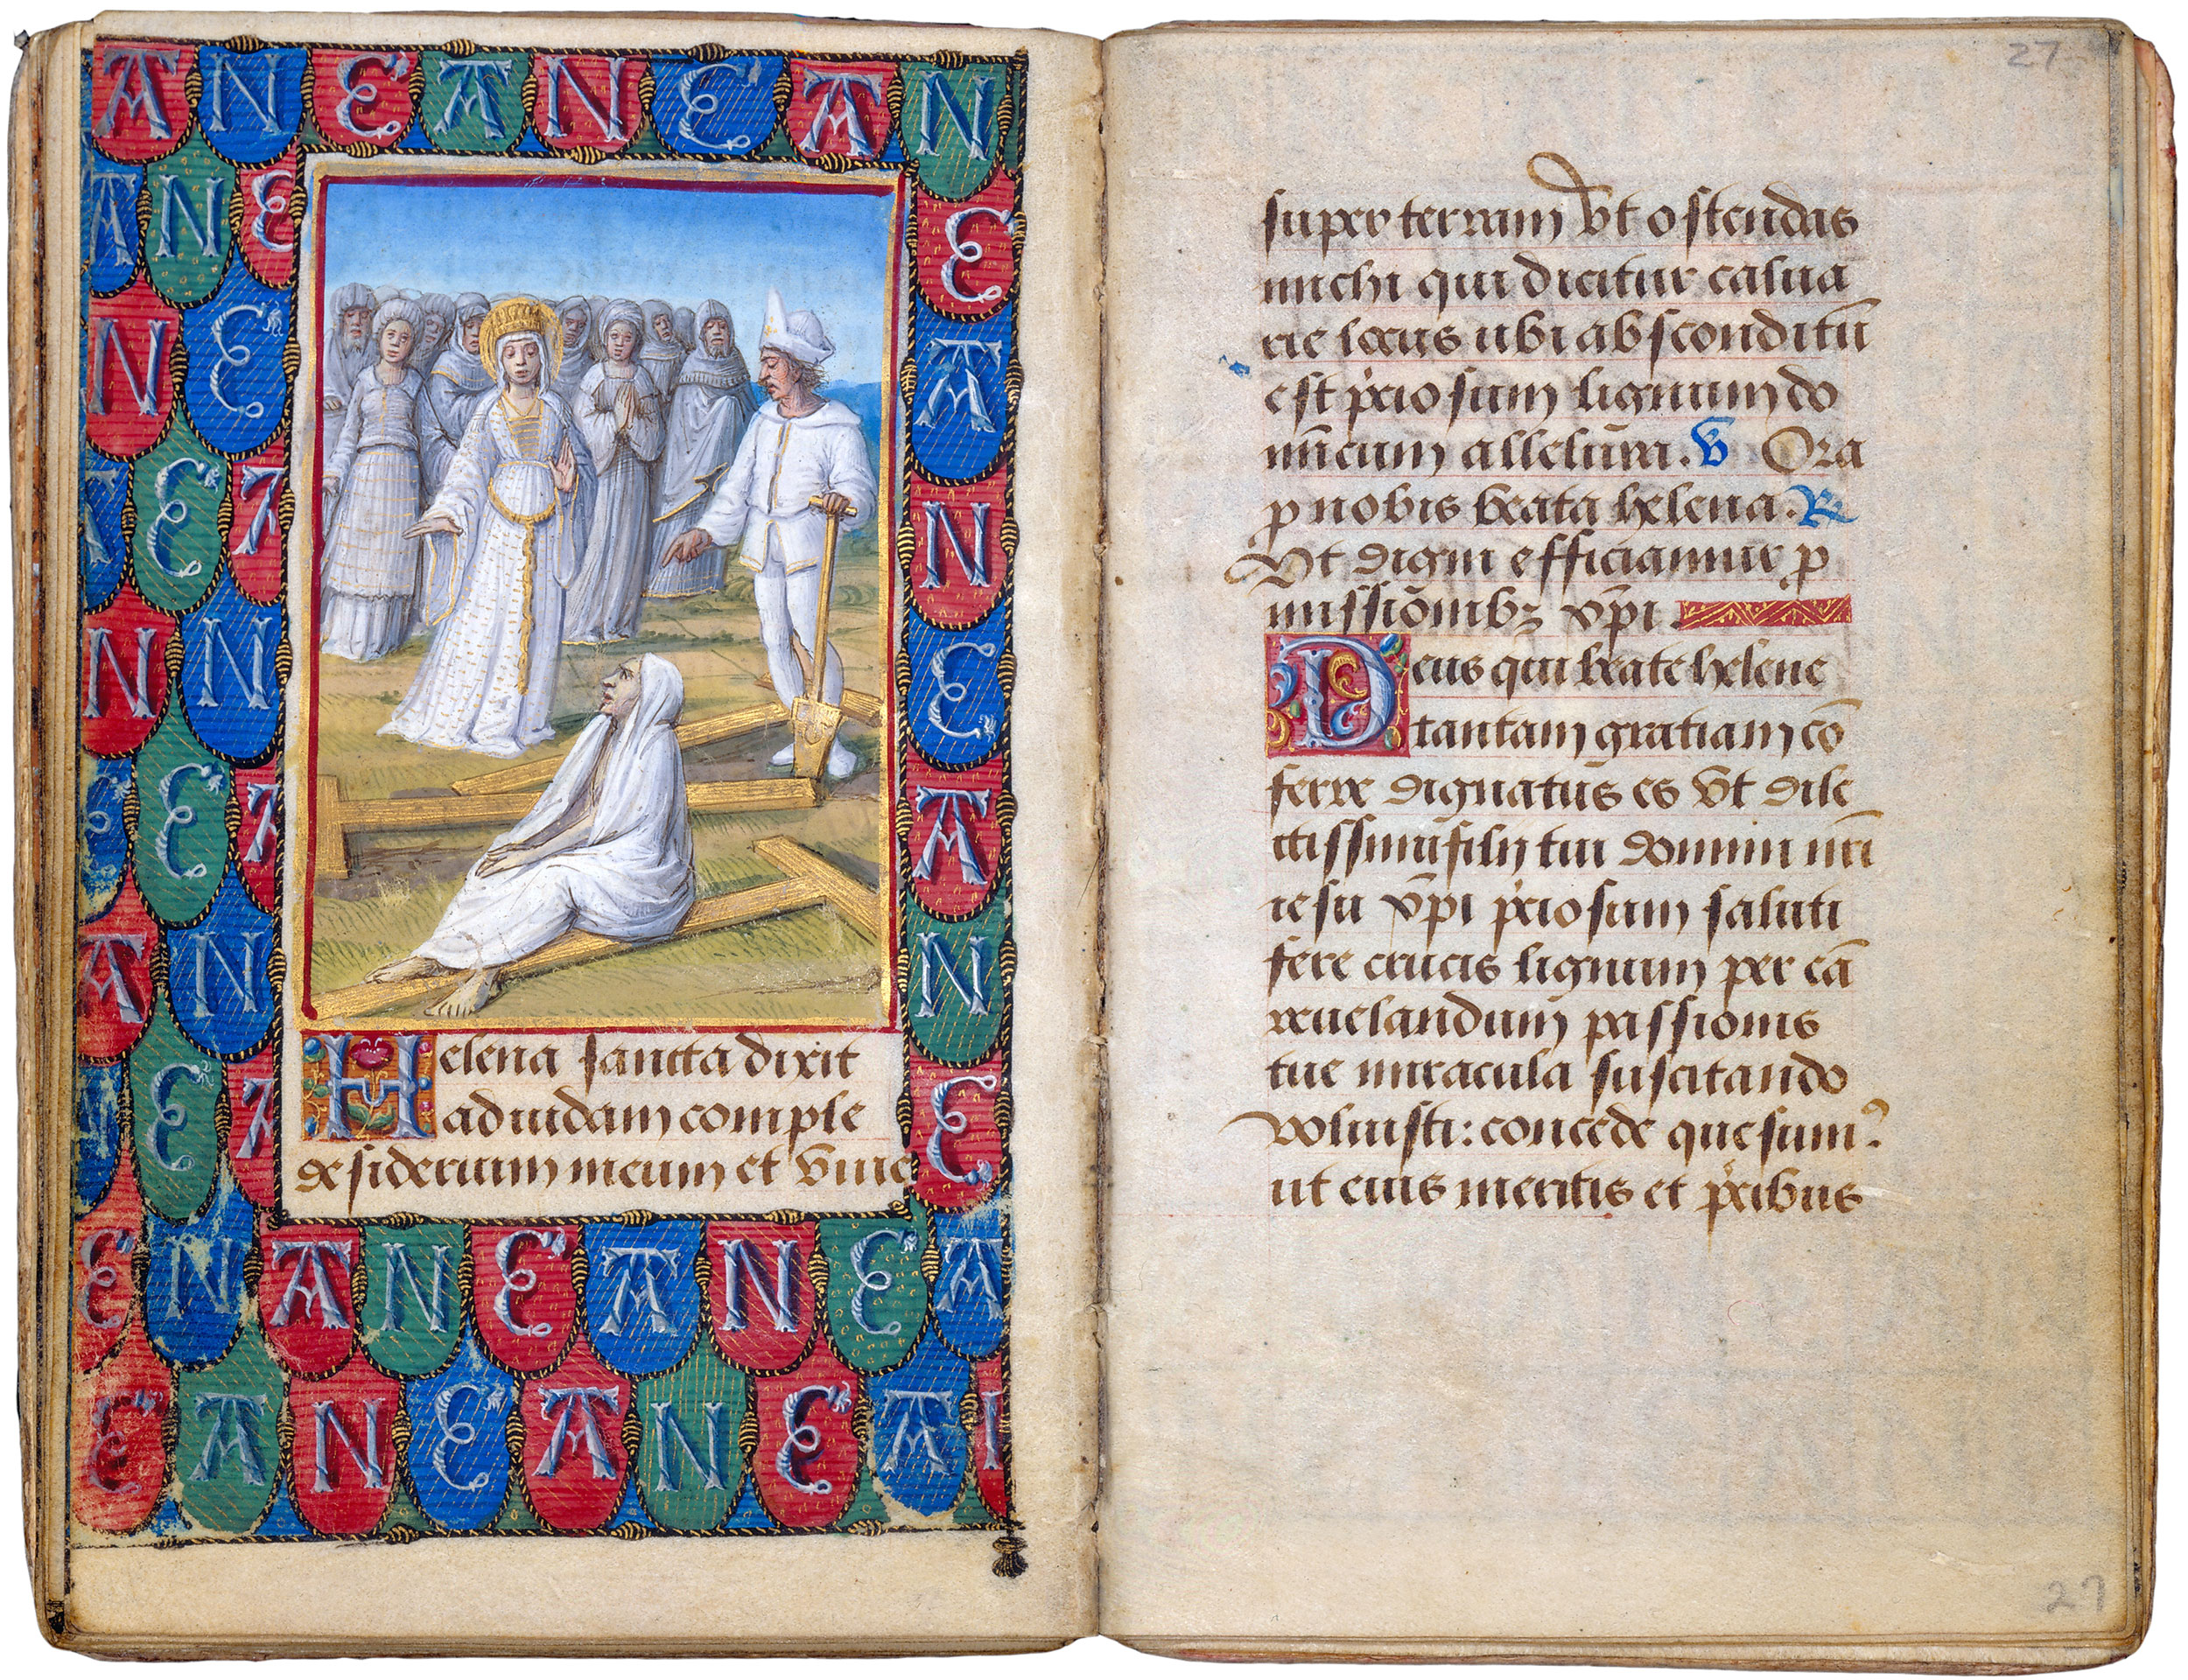 A N E A N E A N
A N E E
N E A
A E A N
N N E
E A A
A N N
E A E
E N A N E A N E A
E A N E A N E A
Helena sancta dixit
ad iudam comple
desiderium meum et viue
27
super terram vt ostendas
michi qui dicitur calua
rie locus ubi absconditū
est p̄ciosum lignum do
mīcum alleluīa. V Ora
p nobis beata helena. R
Vt digni efficiamur p
missiōnibꝫ xp̄i
Deus qui beate helene
tantam gratiam cō
ferre dignatus es vt dile
ctissimi filij tui domini nr̄i
iesu xp̄i p̄ciosum saluti
fere crucis lignum per eā
reuelandum passionis
tue miracula suscitando
voluisti: concede quesumꝰ
ut eius meritis et p̄cibus
27